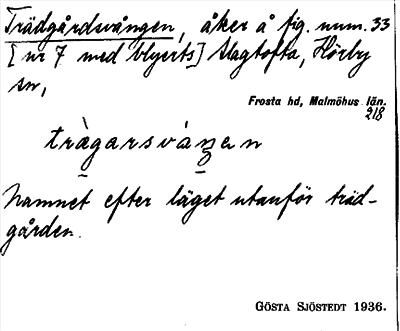 Trädgårdsvången, åker å fig. num. 33
[nr 7 med blyerts] Slagtofta, Hörby
sn,
Frosta hd, Malmöhus län.
218
trägarsvàŋen
Namnet efter läget utanför träd-
gården.
GÖSTA SJÖSTEDT 1936.